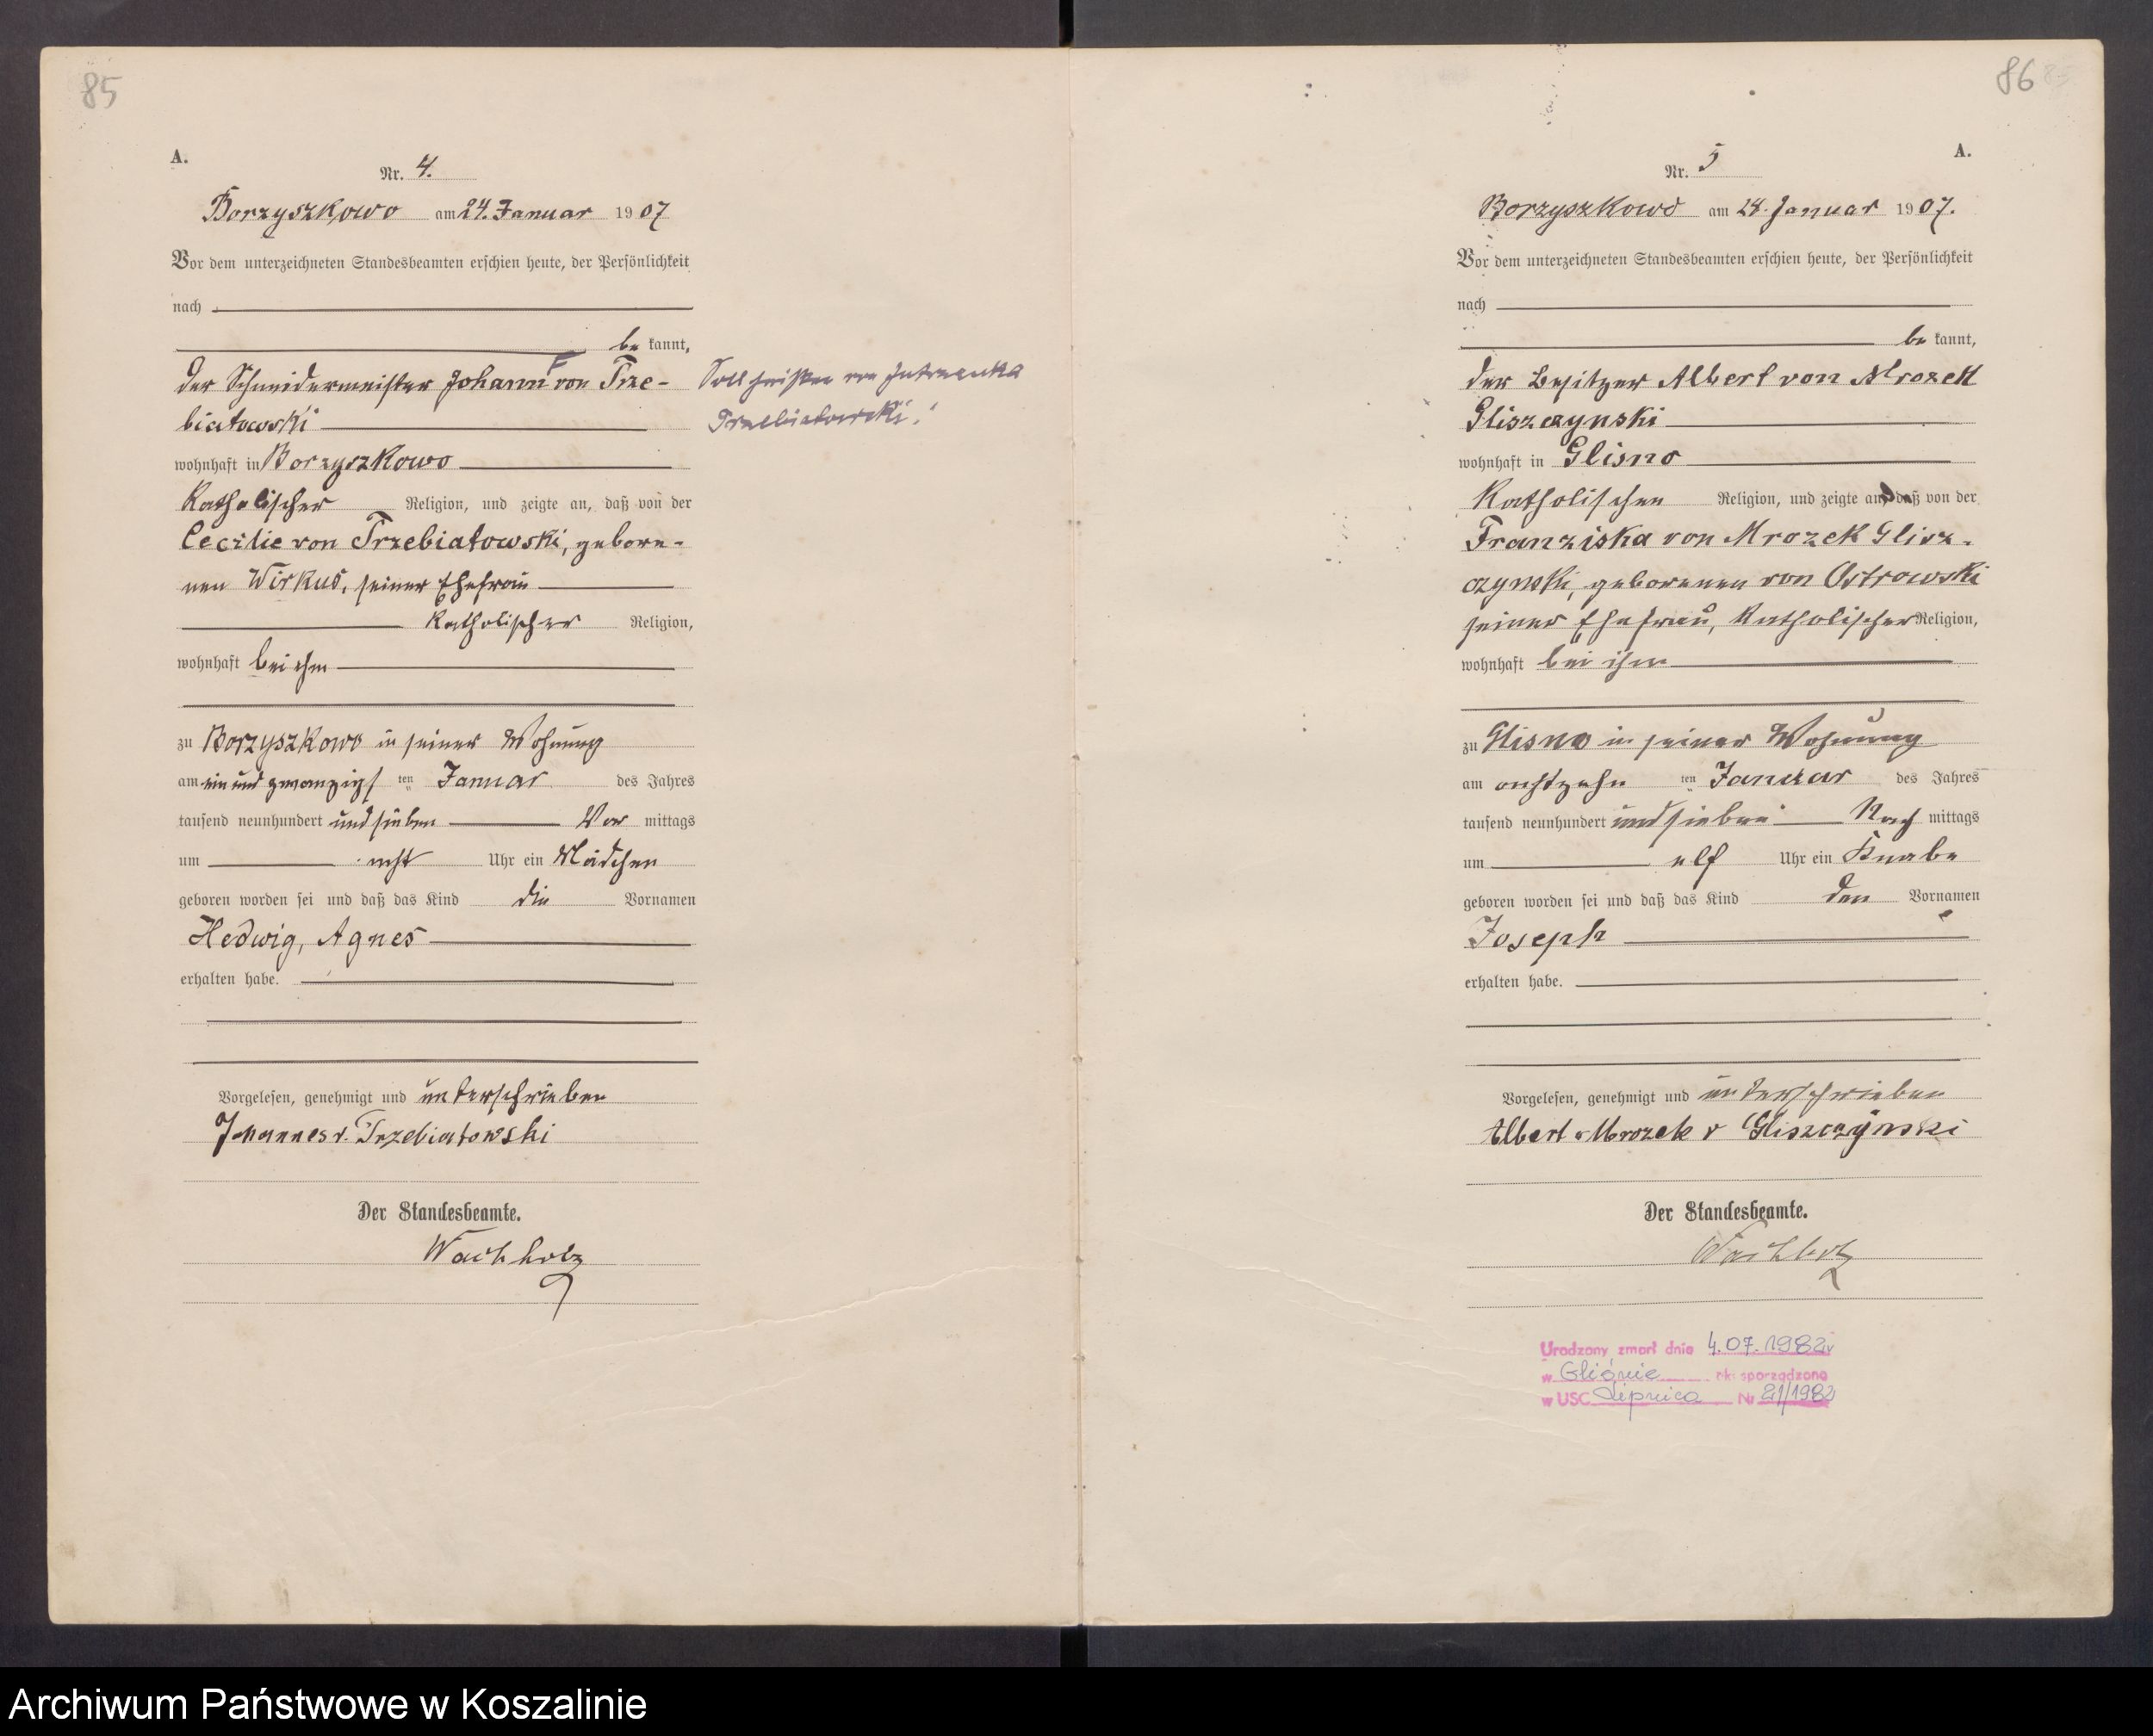 85
A.
Nr. 4.
Borzyszkowo am 24. Januar 1907
Vor dem unterzeichneten Standesbeamten erschien heute, der Persönlichkeit
nach
be kannt,
der Schneidermeister Johann von Trze-
biatowski
wohnhaft in Borzyszkowo
Katholischer Religion, und zeigte an, daß von der
Cecilie von Trzebiatowski, gebore-
nen Wirkus, seiner Ehefrau
Katholischer Religion,
wohnhaft bei ihm
zu Borzyszkowo in seiner Wohnung
am ein und zwanzigsten Januar des Jahres
tausend neunhundert und sieben Vor mittags
um acht Uhr ein Mädchen
geboren worden sei und daß das Kind die Vornamen
Hedwig, Agnes
erhalten habe.
Vorgelesen, genehmigt und unterschrieben
Johannes v. Trzebiatowski
Der Standesbeamte.
Wachholz
Soll heißen von Jutrzenka
Trzebiatowski!
86
A.
Nr. 5
Borzyszkowo am 24. Januar 1907.
Vor dem unterzeichneten Standesbeamten erschien heute, der Persönlichkeit
nach
be kannt,
der Besitzer Albert von Mrozek
Gliszczynski
wohnhaft in Glisno
Katholischen Religion, und zeigte an, daß von der
Franziska von Mrozek Glisz-
czynski, geborenen von Ostrowski
seiner Ehefrau, Katholischer Religion,
wohnhaft bei ihm
zu Glisno in seiner Wohnung
am achtzehn ten Januar des Jahres
tausend neunhundert und sieben Nach mittags
um elf Uhr ein Knabe
geboren worden sei und daß das Kind den Vornamen
Joseph
erhalten habe.
Vorgelesen, genehmigt und unterschrieben
Albert v Mrozek v Gliszczynski
Der Standesbeamte.
Wachholz
Urodzony zmarł dnia 4.07.1982r
w Gliśnie akt sporządzono
w USC Lipnica Nr 21/1982
Archiwum Państwowe w Koszalinie